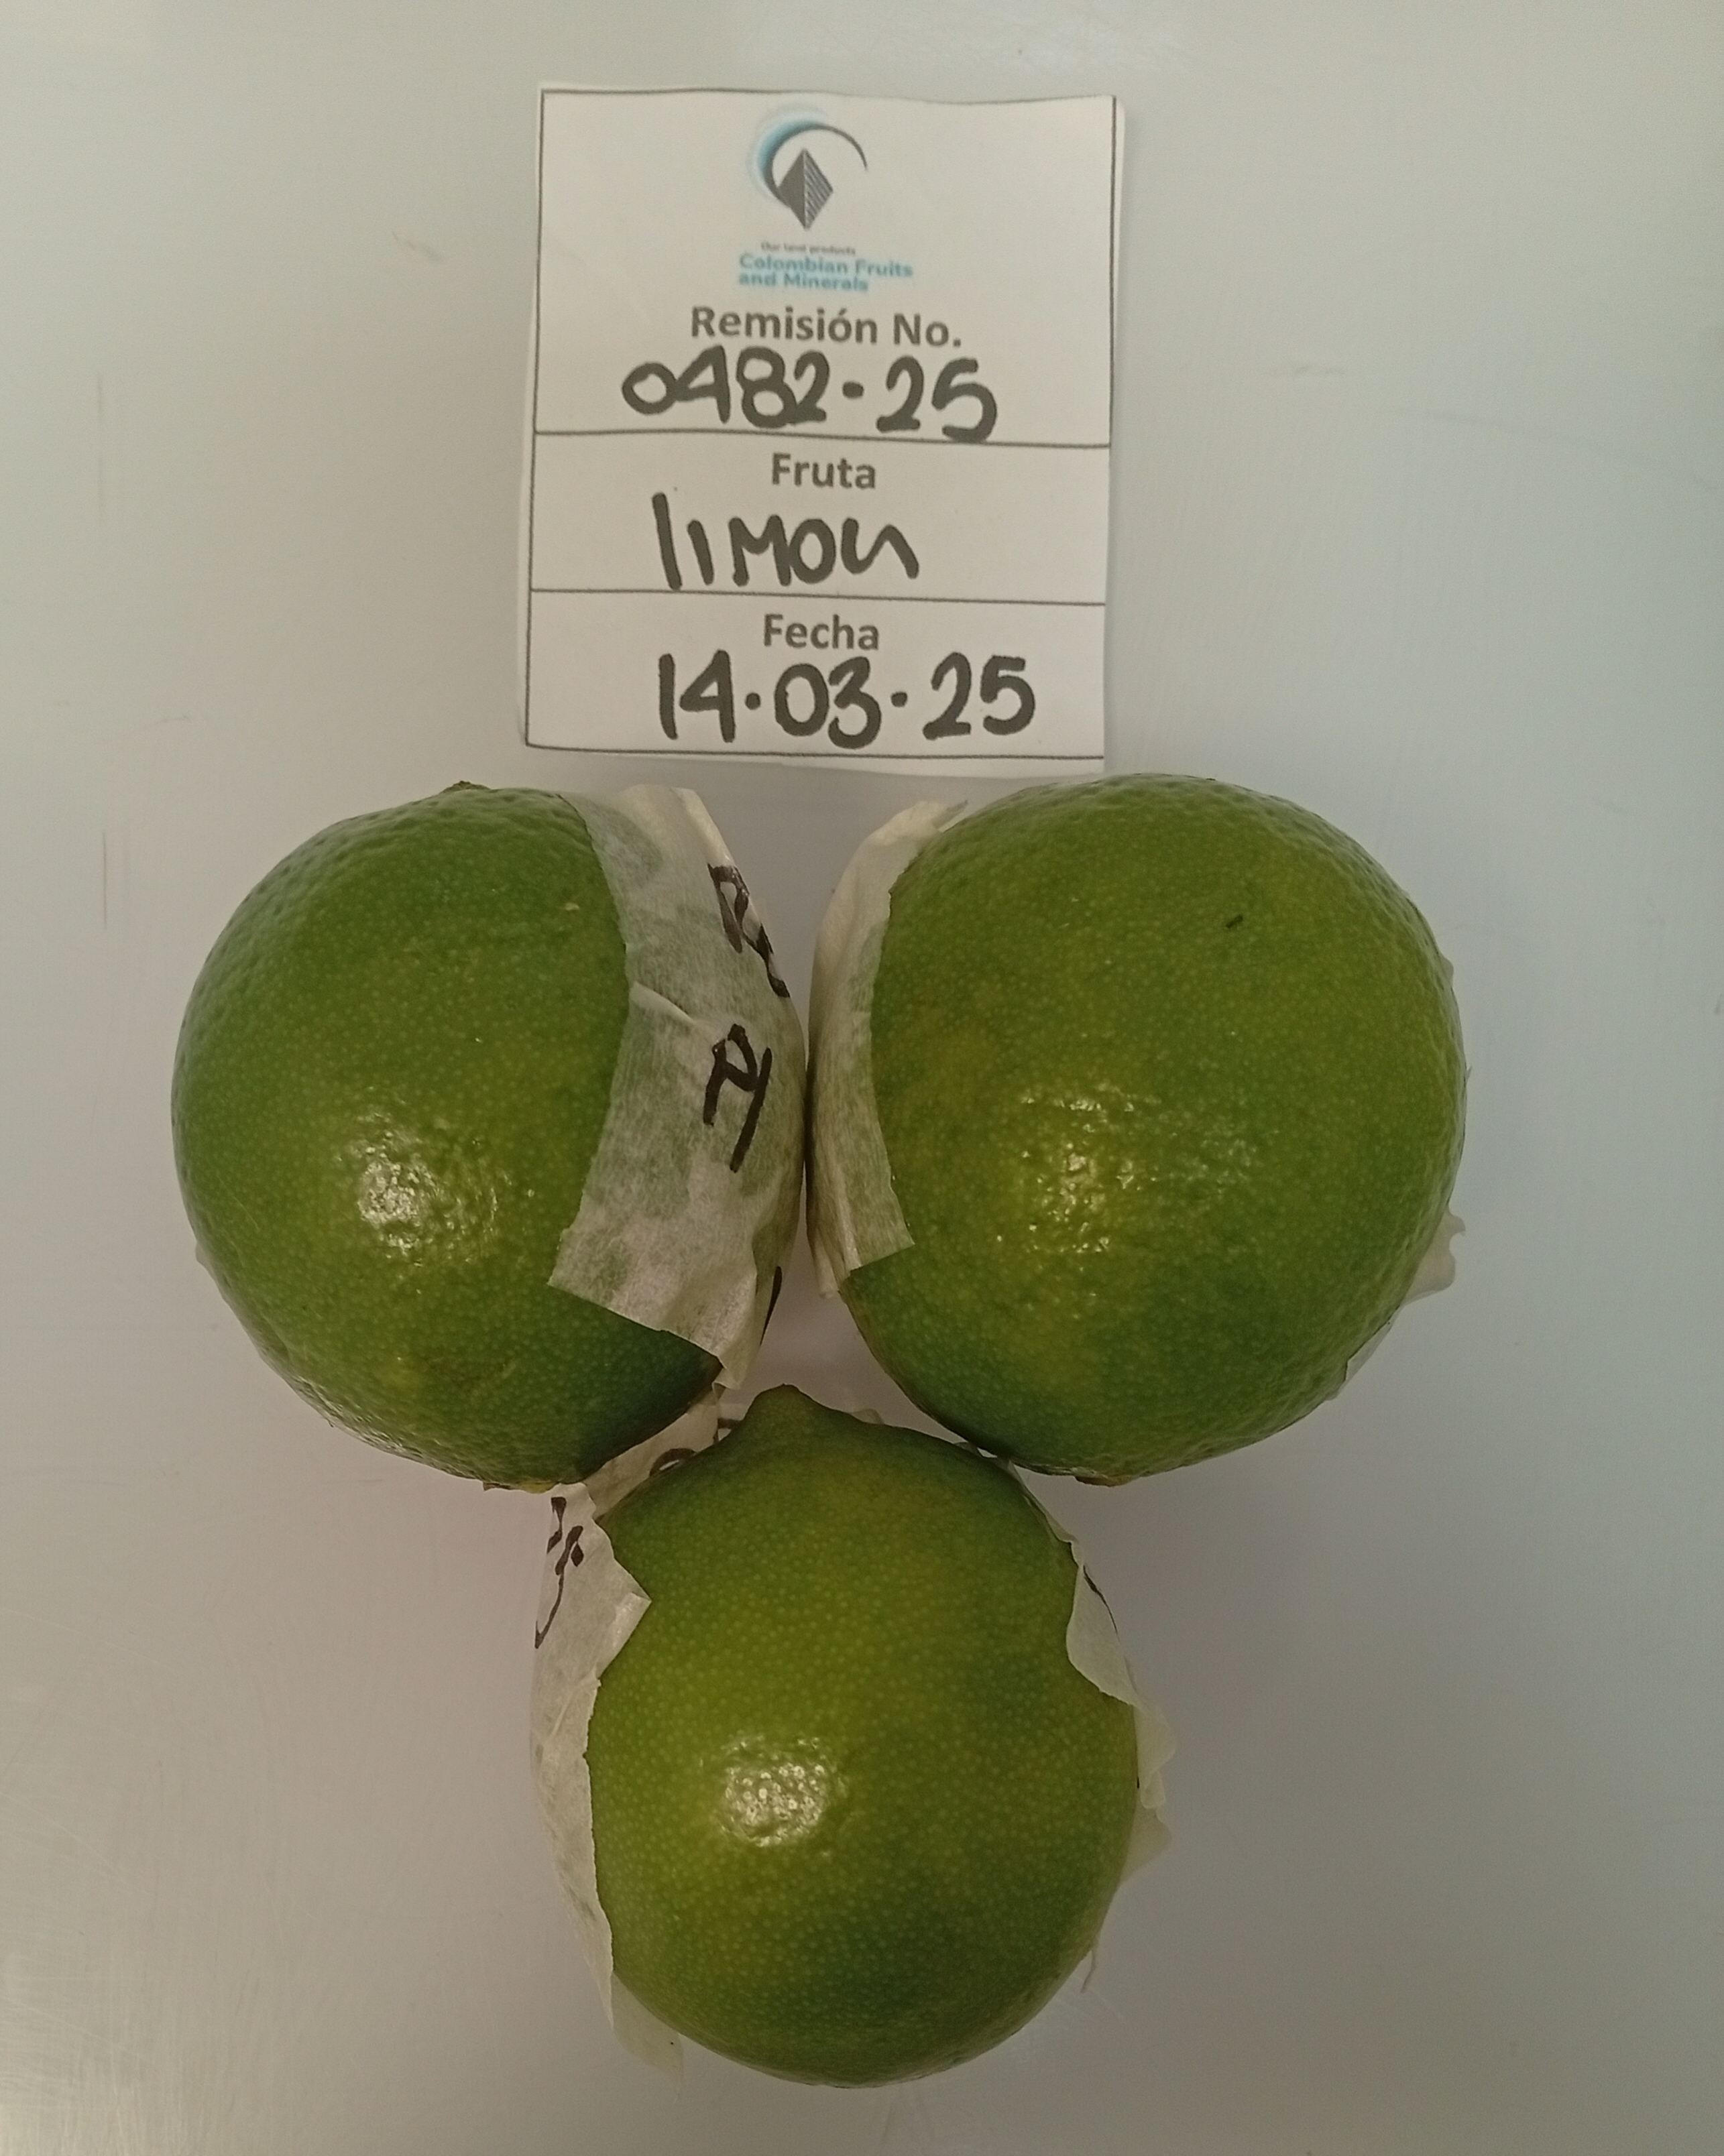 Our land products
Colombian Fruits
and Minerals
Remisión No.
0482-25
Fruta
limon
Fecha
14.03.25